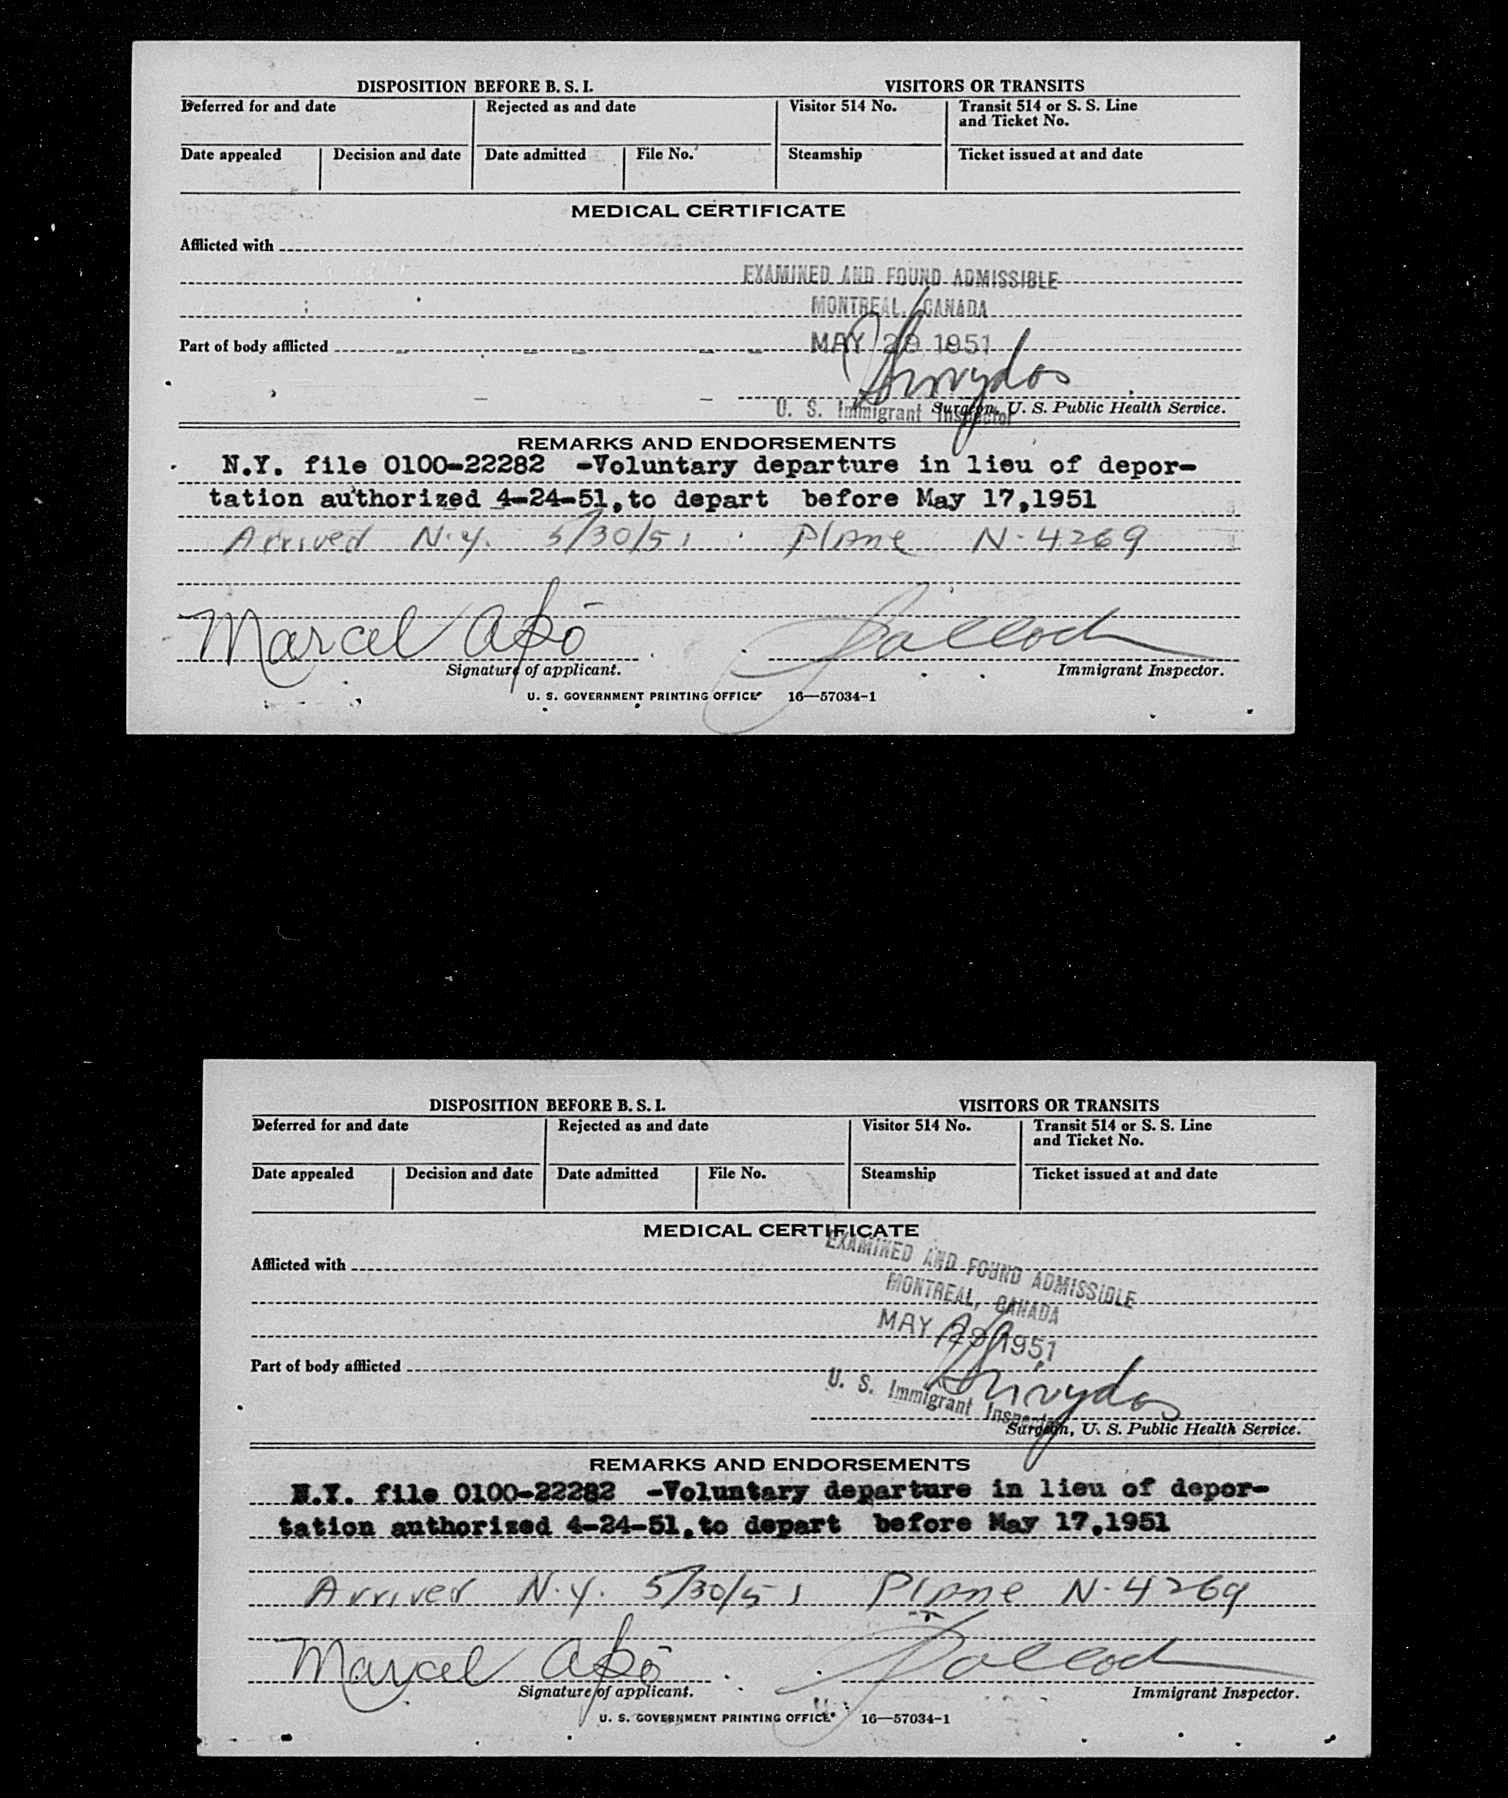 DISPOSITION BEFORE B. S. I. VISITORS OR TRANSITS
Deferred for and date Rejected as and date Visitor 514 No. Transit 514 or S. S. Line
and Ticket No.
Date appealed Decision and date Date admitted File No. Steamship Ticket issued at and date
MEDICAL CERTIFICATE
Afflicted with
EXAMINED AND FOUND ADMISSIBLE
MONTREAL, CANADA
Part of body afflicted MAY 29 1951
U. S. Immigrant Inspector Surgeon, U. S. Public Health Service.
REMARKS AND ENDORSEMENTS
N.Y. file 0100-22282 -Voluntary departure in lieu of depor-
tation authorized 4-24-51,to depart before May 17,1951
Arrived N.Y. 5/30/51 Plane N-4269
Marcel Apō
Signature of applicant. Immigrant Inspector.
U. S. GOVERNMENT PRINTING OFFICE 16—57034-1
DISPOSITION BEFORE B. S. I. VISITORS OR TRANSITS
Deferred for and date Rejected as and date Visitor 514 No. Transit 514 or S. S. Line
and Ticket No.
Date appealed Decision and date Date admitted File No. Steamship Ticket issued at and date
MEDICAL CERTIFICATE
EXAMINED AND FOUND ADMISSIBLE
Afflicted with
MONTREAL, CANADA
MAY 29 1951
Part of body afflicted
U. S. Immigrant Inspector
Surgeon, U. S. Public Health Service.
REMARKS AND ENDORSEMENTS
N.Y. file 0100-22282 -Voluntary departure in lieu of depor-
tation authorized 4-24-51,to depart before May 17,1951
Arrived N.Y. 5/30/51 Plane N-4269
Marcel Apō
Signature of applicant. Immigrant Inspector.
U. S. GOVERNMENT PRINTING OFFICE 16—57034-1